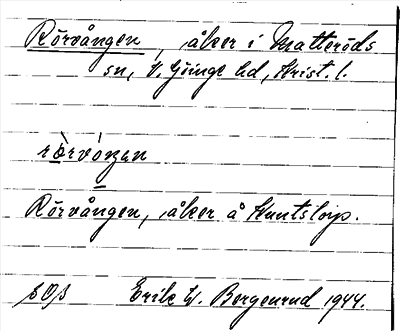 Rörvången, åker i Matteröds
sn, V. Göinge hd, Krist. l.
rörvóngan
Rörvången, åker å Huntstorp.
SOS Erik W. Bergenrud 1944.